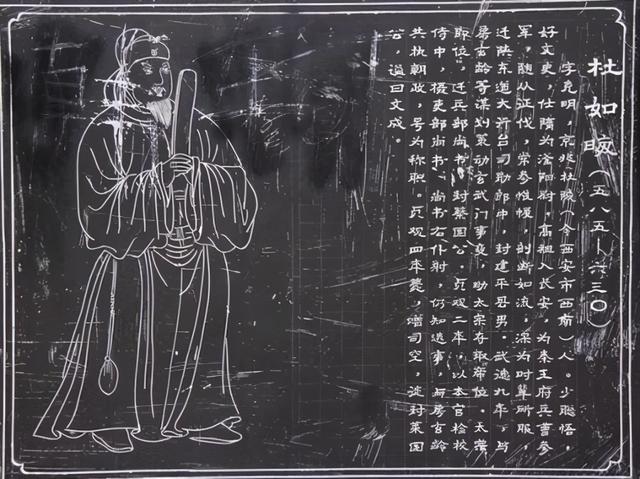 杜如晦（五八五—六三〇）
字克明，京兆杜陵（今西安市西南）人。少聪悟，
好文史，仕隋为滏阳尉，高祖入长安，为秦王府兵曹参
军，随从征伐，常参帷幄，剖断如流，深为时辈所服，
迁陕东道大行台司勋郎中，封建平县男。武德九年，与
房玄龄等谋划策动玄武门事变，助太宗夺取帝位。太宗
即位，迁兵部尚书，封蔡国公。贞观二年，以本官检校
侍中，摄吏部尚书、尚书右仆射，仍知选事，与房玄龄
共执朝政，号为称职。贞观四年薨，赠司空，徙封莱国
公，谥曰文成。